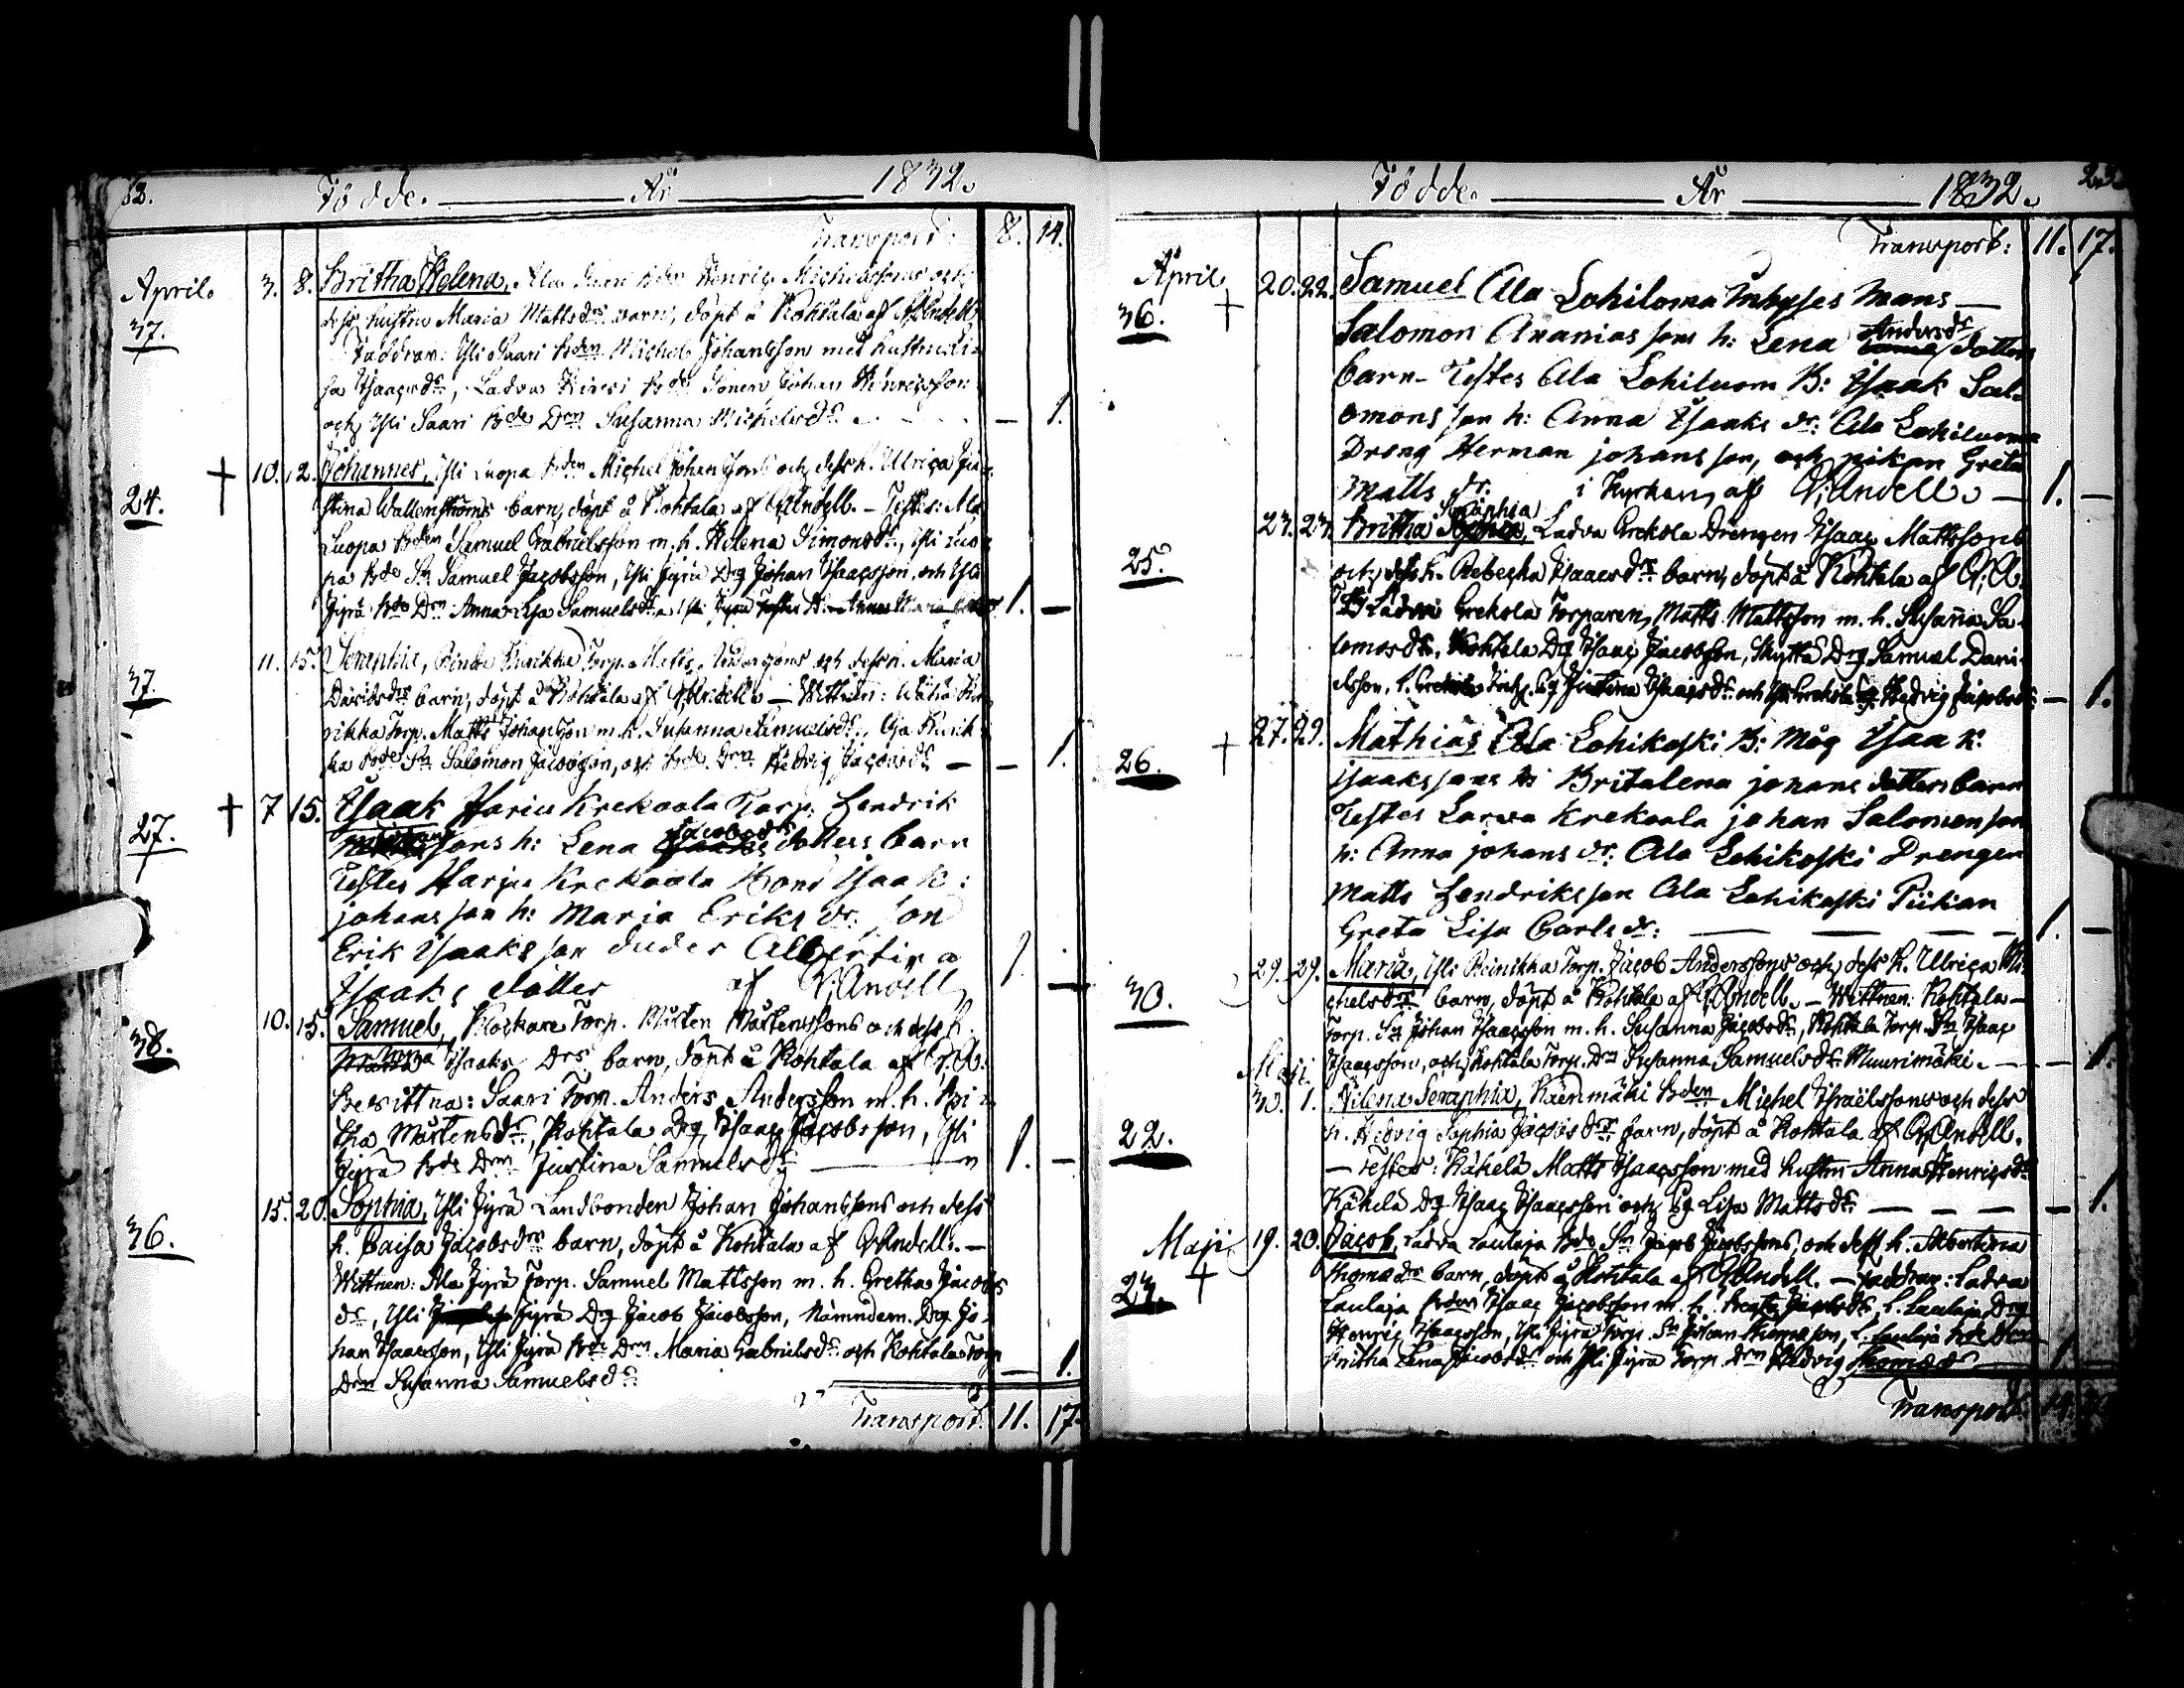 Födde. År 1832.
Transport: 8. 14.
April. 3. 8. Britha Helena, Ala Saari Bdn Henric Michelssons och
37. dess hustru Maria Mattsdrs barn, döpt å Kohtala af A. Andell
Faddrar: Yli Saari Bden Michel Johansson med hustru Li-
sa Isaacsdr, Ladva Hirvi Bde Sonen Johan Henricsson
och Yli Saari Bde Drn Susanna Michelsdr. — 1.
† 10. 12. Johannes, Yli Luopa Bden Michel Johanssons och dess h. Ulrica Ju-
24. stina Wallenströms barn, döpt å Kohtala af A. Andell. — Testes: Ala
Luopa Bden Samuel Gabrielsson m. h. Helena Simonsdr, Yli Luo-
pa Bde Sn Samuel Jacobsson, Yli Jyrä Dg Johan Isaacsson, och Yli
Jyrä Bde Drn Anna Lisa Samuelsdr 1. —
11. 15. Seraphia, Kurikka Torp. Matts Anderssons och dess h. Maria
37. Davidsdrs barn, döpt å Kohtala af A. Andell — Wittnen: Ku-
rikka Torp. Matts Johansson m. h. Susanna Samuelsdr, Kurik-
ka Bde Sn Salomon Jacobsson, och Bde Drn Hedvig Jacobsdr — — 1.
† 7 15. Isaak Harju Krekoola Torp: Hendrik
27. sons h: Lena Jacobsdr dotters barn
Testes Harju Krekoola Bond Isaak:
johans son h: Maria Eriks dr: son
Erik Isaaks son Albertina
Isaaks dotter af A. Andell 1. —
10. 15. Samuel, Klockare Torp. Mårten Mårtenssons och dess h.
38. Isaaks Drs barn, döpt å Kohtala af A. A.
Bevittna: Saari Torp. Anders Andersson m. h. Bri-
tha Mårtensdr, Kohtala Drg Isaac Jacobsson, Yli
Jyrä Bde Drn Justina Samuelsdr — 1. —
15. 20. Sophia, Yli Jyrä Landbonden Johan Johanssons och dess
36. h. Caisa Jacobsdrs barn, döpt å Kohtala af A. Andell. —
Wittnen: Ala Jyrä Torp. Samuel Mattsson m. h. Gretha Jacobs
dr, Yli Jyrä Drg Jacob Jacobsson, Nämndem. Drg Jo-
han Isaacsson, Yli Jyrä Bde Drn Maria Gabrielsdr och Kohtala Torp
Drn Susanna Samuelsdr. — 1.
Transport. 11. 17.
Födde. År 1832.
Transport: 11. 17.
April 20. 22. Samuel Ala Lohiloma Inhyses Mans —
36. † Salomon Ananias sons h: Lena Andersdr dotters
barn — Testes Ala Lohiluom B: Isaak Sal-
omons son h: Anna Isaaks dr: Ala Lohiluoma
Dreng Herman johans son, och pikan Greta
Matts dr: i Kyrkan, af A. Andell. — 1. —
Seraphia
23. 23. Britha, Ladva Grekola Drengen Isaac Mattssons
25. och dess h. Rebecka Isaacsdrs barn, döpt å Kohtala af A. A.
Ladva Grekola Torparen Matts Mattsson m. h. Susanna Sa-
lomosdr, Kohtala Drg Isaac Jacobsson, Drg Samuel Davi-
dsson, Justina Isaacsdr och Hedvig Jacobsdr — 1.
27. 29. Mathias Ala Lohikoski B: Måg Isaak:
26. † isaaks sons h: Britalena johans dotters barn
Testes Larva Krekoola johan Salomonson
h: Anna johans dr: Ala Lohikoski Drengen
Matts Hendriksson Ala Lohikoski Piikan
Greta Lisa Carls dr: — — — 1. —
29. 29. Maria, Yli Reinikka Torp. Jacob Anderssons och dess h. Ulrica Mi-
30. chelsdrs barn, döpt å Kohtala af A. Andell. — Wittnen: Kohtala —
Torp. Sn Johan Isaacsson m. h. Susanna Jacobsdr, Kohtala Torp. Sn Isaac
Isaacsson, och Kohtala Torp. Drn Susanna Samuelsdr Muurimäki. — — 1.
Maji
30. 1. Helena Seraphia, Käenmäki Bden Michel Israëlssons och dess
22. h. Hedvig Sophia Jacobsdrs barn, döpt å Kohtala af A. Andell.
— Testes: Kähelä Matts Isaacsson med hustru Anna Henricsdr
Kähelä Drg Isaac Isaacsson och Pg Lisa Mattsdr. — — — — 1.
Maji 19. 20. Jacob, Ladva Laulaja Bde Sn Jacob Jacobssons, och dess h. Albertina
23. † Thomædrs barn, döpt å Kohtala af A. Andell. — Faddrar: Ladva
Laulaja Bden Isaac Jacobsson m. h. Beata Jacobsdr, L. Laulaja Drg
Henric Isaacsson, Yli Jyrä Torp. Sn Johan Thomasson, L. Laulaja Bde Drn
Britha Lena Jacobsdr och Yli Jyrä Torp. Drn Hedvig Thomædr
Transport.